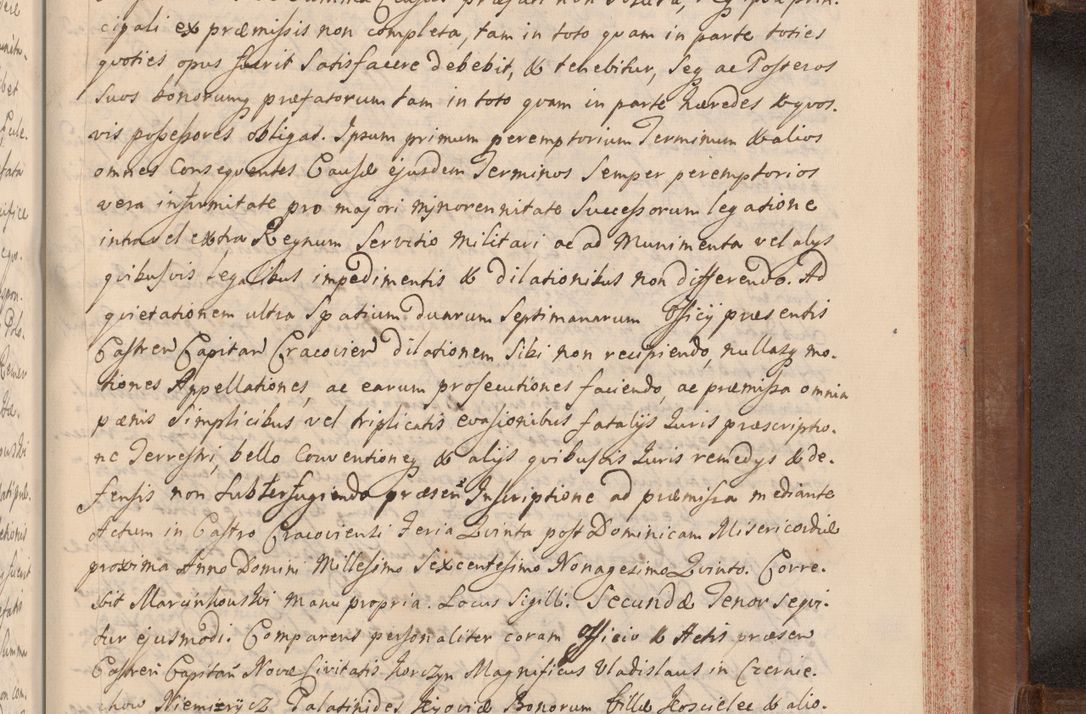 cipali ex præmissis non completa, tam in toto quam in parte toties
quoties opus fuerit satisfacere debebit, & tenebitur, seq ac Posteros
suos bonorumq præfatorum tam in toto quam in parte hæredes & quos.
vis possessores obligat. Ipsum primum peremptorium Terminum & alios
omnes consequentes Causæ ejusdem Terminos semper peremptorios
vera infirmitate pro majori minorennitate Successorum legatione
intra vel extra Regnum servitio Militari ac ad Munimenta vel alys
quibusvis legalibus impedimentis & dilationibus non differendo. Ad
quietationem ultra spatium duarum septimanarum Officij præsentis
Castren Capitan Cracovien dilationem sibi non recipiendo, nullasq mo.
tiones Appellationes, ac earum prosecutiones faciendo, ac præmissa omnia
pænis simplicibus, vel triplicatis evasionibus fatalijs Iuris præscriptio.
ne Terrestri, bello Conventioneq & alijs quibusvis Iuris remedys & de.
fensis non subterfugiendo præsen Inscriptione ad præmissa mediante
Actum in Castro Cracoviensi Feria Quinta post Dominicam Misericordiæ
proxima Anno Domini Millesimo Sexcentesimo Nonagesimo Quinto. Corre.
xit Marcinkowski manu propria. Locus Sigilli. Secundæ Tenor sequi.
tur ejusmodi. Comparens personaliter coram Officio & Actis præsen
Castren Capitan Novæ Civitatis Korczyn Magnificus Vladislaus in Czernie.
chow Niemierycz Palatinides Kijoviæ Bonorum Villæ Koscielec & alio.